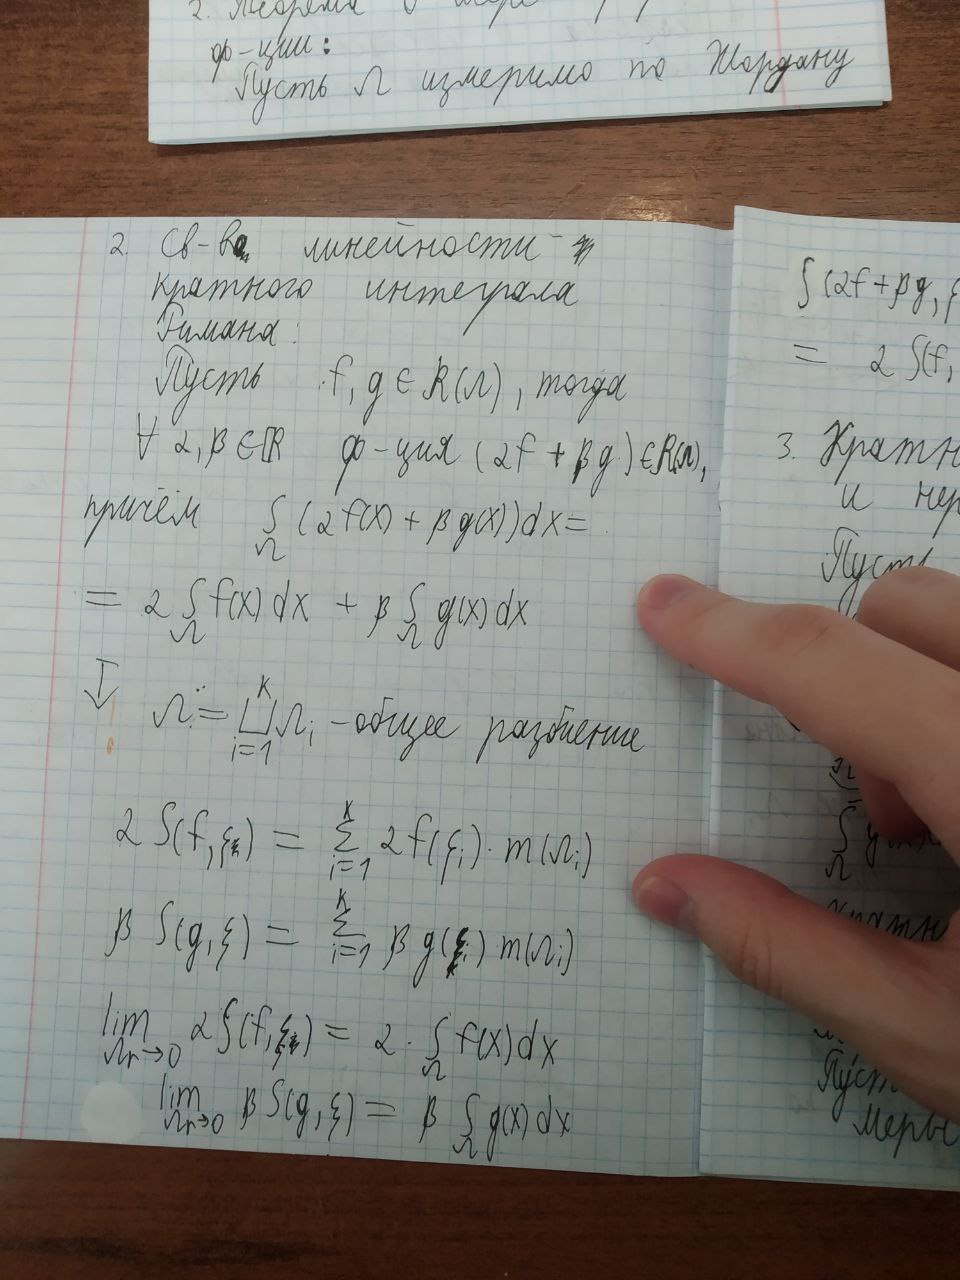 ф-ции:
Пусть Ω измеримо по Жордану
2. Св-во линейности
кратного интеграла
Римана:
Пусть f, g ∈ R(Ω), тогда
∀ α, β ∈ ℝ ф-ция (αf + βg) ∈ R(Ω),
причём ∫_Ω (αf(x) + βg(x))dx =
= α ∫_Ω f(x)dx + β ∫_Ω g(x)dx
↓
Ω := ⊔_{i=1}^{K} Ω_i - общее разбиение
α S(f, ξ) = Σ_{i=1}^{K} α f(ξ_i) · m(Ω_i)
β S(g, ξ) = Σ_{i=1}^{K} β g(ξ_i) m(Ω_i)
lim_{Λτ→0} α S(f, ξ) = α · ∫_Ω f(x)dx
lim_{Λτ→0} β S(g, ξ) = β ∫_Ω g(x)dx
S(αf + βg, ξ
= α S(f,
3. Кратн
и нер
Пусть
Пуст
меры